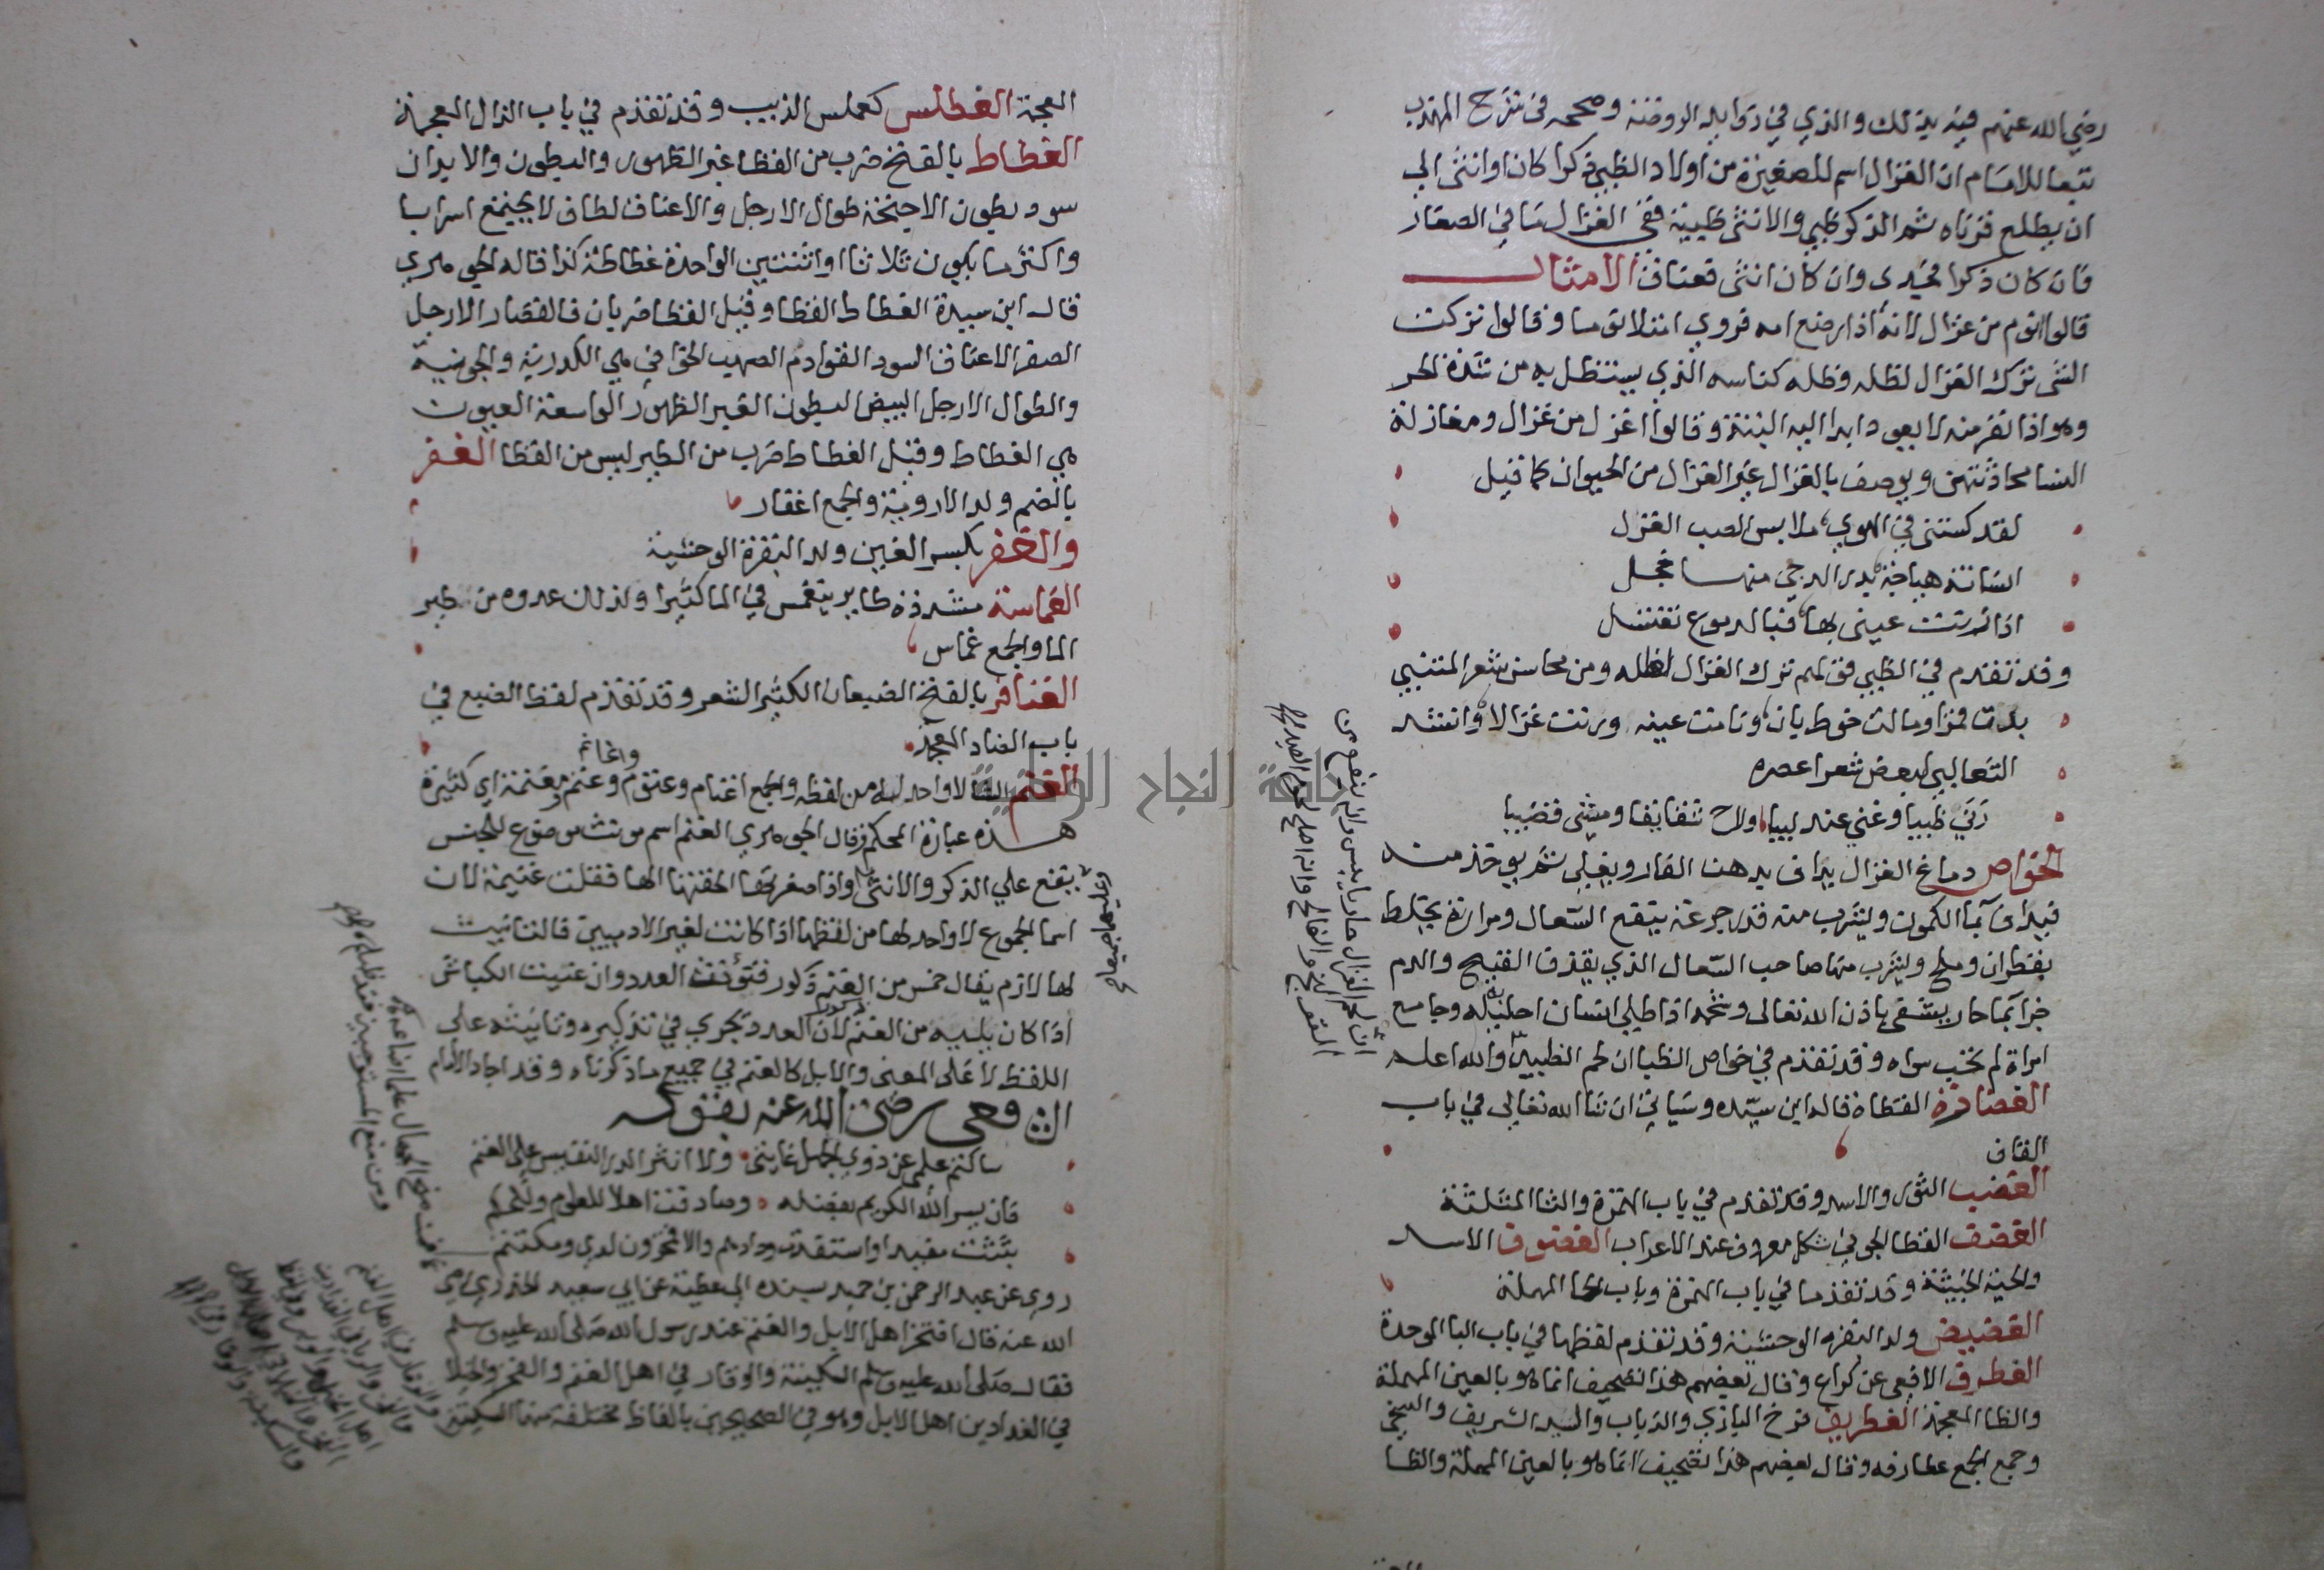 رضي الله عنهم فيه بذلك والذي في زوايد الروضة وصححه في شرح المهذب
تبعا للامام ان الغزال اسم للصغيرة من اولاد الظبي ذكرا كان او انثى الي
ان يطلع قرناه ثم الذكر ظبي والانثى ظبية ففي الغزال ما في الصغار
فان كان ذكرا فجدى وان كان انثى فعناق الامثال
قالوا انوم من غزال لانه اذا رضع امه فروي امتلا نوما وقالوا تركت
الشى ترك الغزال لظله وظله كناسه الذي يستظل به من شدة الحر
وهو اذا نفر منه لا يعود ابدا اليه البتة وقالوا اغزل من غزال ومغازلة
النسا محادثتهن ويوصف بالغزال غير الغزال من الحيوان كما قيل
لقد كستني في الهوي ملابس الصب الغزل
انسانة هباجة بدر الدجي منها خجل
اذا زنت عيني بها فبالدموع تغتسل
وقد تقدم في الظبي قولهم ترك الغزال لظله ومن محاسن شعر المتنبي
بدت قمرا ومالت خوط بان وفاحت عنبرا ورنت غزالا وانشد
الثعالبي لبعض شعرا عصره
رني ظبيا وغني عندليبا ولاح شقايقا ومشى قضيبا
الخواص دماغ الغزال يداف بدهن الغار ويغلى ثم يوخذ منه
فيداف بما الكمون ويشرب منه قدر جرعة ينفع السعال ومرارته يختلط
بقطران وملح ويشرب منها صاحب السعال الذي يقذف القيح والدم
جزا بما حار يشفى باذن الله تعالى وشحمه اذا طلي انسان احليله وجامع
امراة لم تحب سواه وقد تقدم في خواص الظبا ان لحم الظبي والله اعلم
ان لحم الغزال حار يابس وانه ينفع من
القولنج والفالج وانه اصلح لحوم الصيد
الغضارة القطاة قاله ابن سيده وسياتي ان شا الله تعالي في باب
القاف
الغضب الثور والاسد وقد تقدم في باب الهمزة والثا المثلثة
الغضف القطا الجوني شكل معروف عند الاعراب الغضوف الاسد
والحية الخبيثة وقد تقدما في باب الهمزة وباب الحا المهملة
الغضيض ولد البقرة الوحشية وقد تقدم لفظها في باب البا الموحدة
الغطرب الافعى عن كراع وقال بعضهم هذا تصحيف انما هو بالعين المهملة
والظا المعجمة الغطريف فرخ البازي والذباب والسيد الشريف والسخي
وجمع الجمع غطارفه وقال بعضهم هذا تصحيف انما هو بالعين المهملة والظا
المعجمة الغطلس كعملس الذيب وقد تقدم في باب الذال المعجمة
الغطاط بالفتح ضرب من القطا غبر الظهور والبطون والابدان
سود بطون الاجنحة طوال الارجل والاعناق لطاف لا يجتمع اسرابا
واكثر ما يكون ثلاثا او اثنتين الواحدة غطاطة كذا قاله الجوهري
قال ابن سيدة الغطاط القطا وقيل القطا ضربان فالقصار الارجل
الصفر الاعناق السود القوادم الصهب الخوافي هي الكدرية والجونية
والطوال الارجل البيض البطون الغبر الظهور الواسعة العيون
هي الغطاط وقيل الغطاط ضرب من الطير ليس من القطا الغفر
بالضم ولد الاروية والجمع اغفار
والغفر بكسر الغين ولد البقرة الوحشية
الغماسة مشددة طاير يتغمس في الما كثيرا ولذلك عدوه من طير
الما والجمع غماس
الغنافر بالفتح الضبعان الكثير الشعر وقد تقدم لفظ الضبع في
باب الضاد المعجمة
واغانم
الغنم الشا لا واحد له من لفظه والجمع اغنام وغنوم وغنم مغنمة اي كثيرة
هذه عبارة المحكم وقال الجوهري الغنم اسم مونث موضوع للجنس
يقع على الذكور والاناث واذا صغرتها الحقتها الها فقلت غنيمة لان
وعليهما جميعا
اسما الجموع لا واحد لها من لفظها اذا كانت لغير الادميين فالتانيث
لها لازم يقال خمس من الغنم ذكور فتؤنث العدد وان عنيت الكباش
اذا كان يليه من الغنم لان العدد يجري في تذكيره وتانيثه على
اللفظ لا على المعنى والابل كالغنم في جميع ما ذكرناه وقد اجاد الامام
الشافعي رضي الله عنه بقوله
ساكتم علمي عن ذوي الجهل غايتي ولا انثر الدر النفيس على الغنم
فان يسر الله الكريم بفضله وصادفت اهلا للعلوم وللحكم
بثثت مفيدا واستفدت ودادهم والا فمخزون لدي ومكتتم
فمن منح الجهال علما اضاعه
ومن منع المستوجبين فقد ظلم
روى عن عبد الرحمن بن حميد بسنده الى عطية عن ابي سعيد الخدري رضي
الله عنه قال افتخر اهل الابل والغنم عند رسول الله صلى الله عليه وسلم
فقال صلى الله عليه وسلم السكينة والوقار في اهل الغنم والفخر والخيلا
في الفدادين اهل الابل وهو في الصحيحين بالفاظ مختلفة منها السكينة
والوقار في اهل الغنم